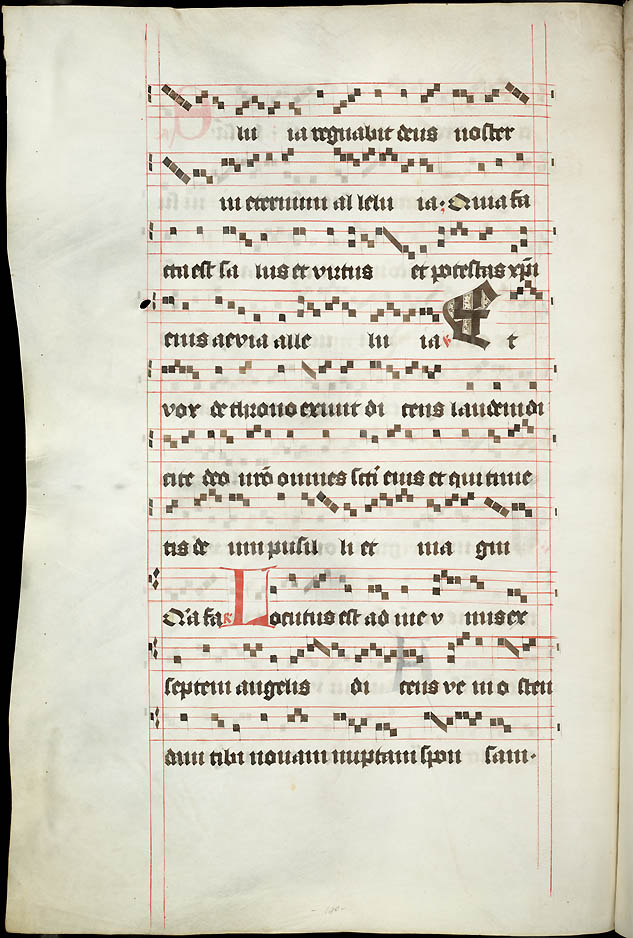 lu ia regnabit deus noster
in eternum al lelu ia. Quia fa
cta est sa lus et virtus et potestas xpi
eius aevia alle lu ia Et
vox de throno exivit di cens laudem di
cite deo nro omnes scti eius et qui time
tis de um pusil li et ma gni
Q'a fa Locutus est ad me v nus ex
septem angelis di cens ve ni o sten
dam tibi novam nuptam spon sam.